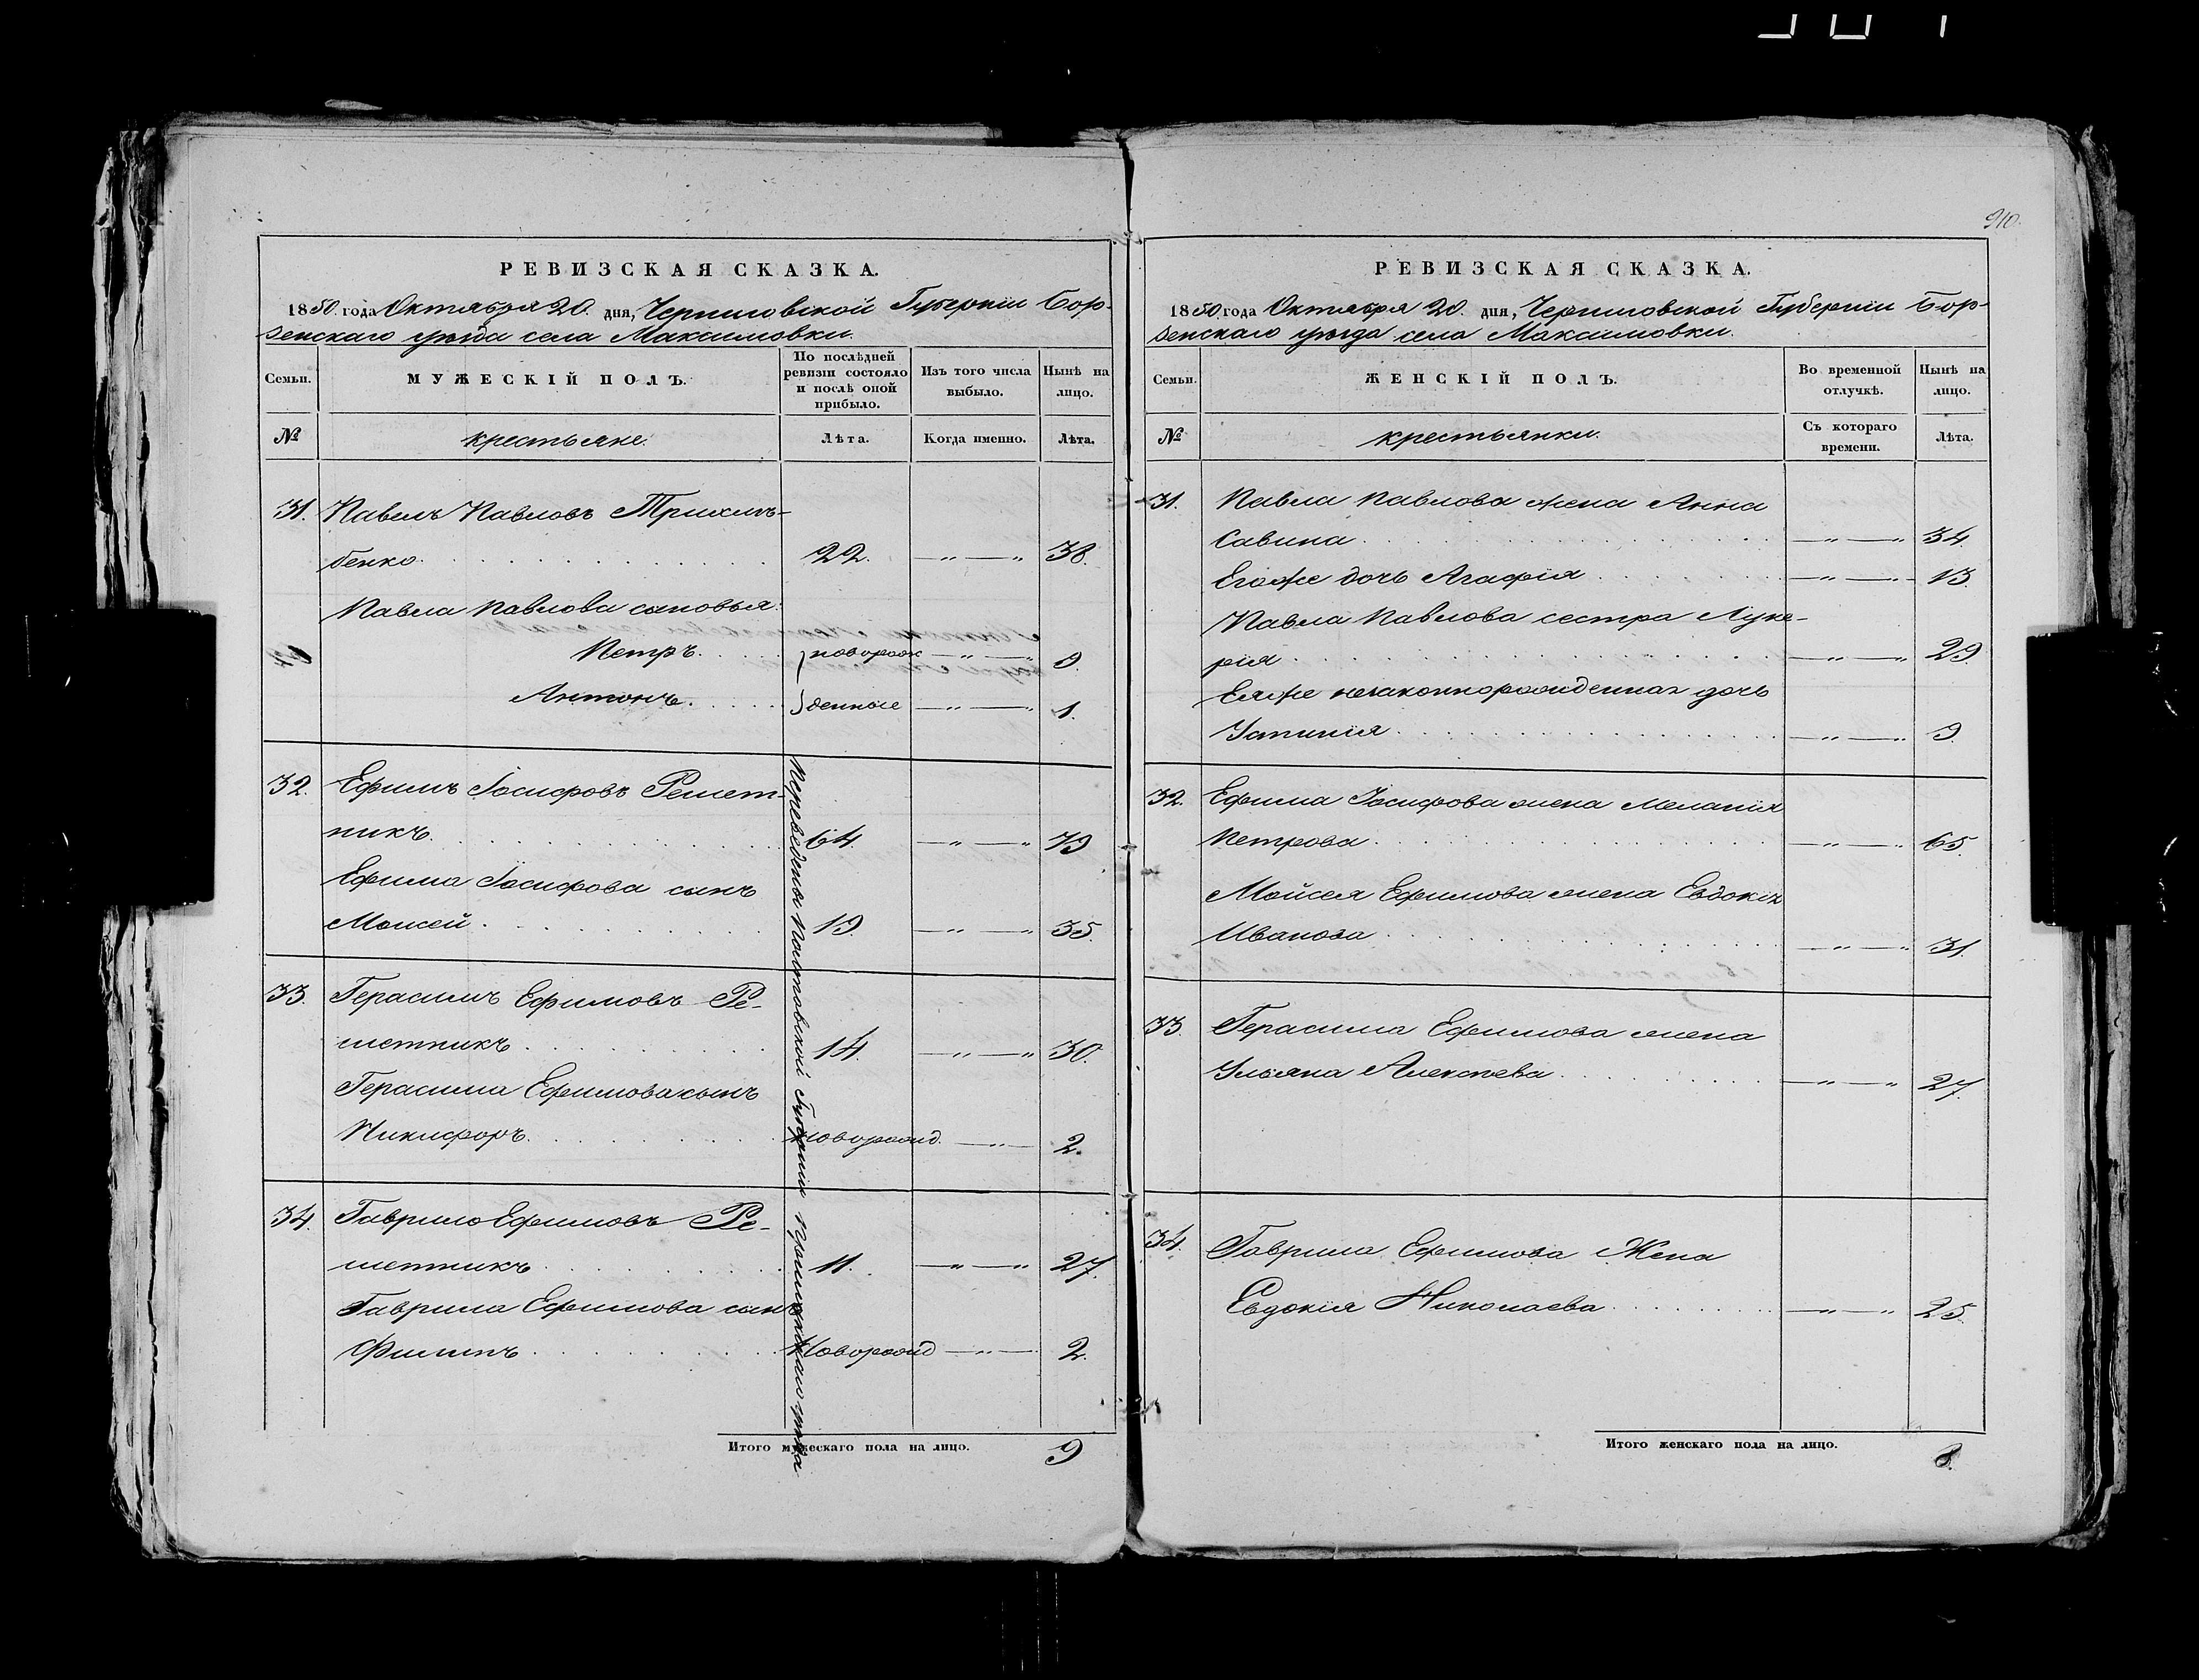 940.
РЕВИЗСКАЯ СКАЗКА.
1850. года Октября 20. дня, Черниговской Губерніи Бор-
зенскаго уѣзда села Максимовки.
Семьи.
МУЖЕСКІЙ ПОЛЪ.
По послѣдней ревизіи состояло и послѣ оной прибыло.
Изъ того числа выбыло.
Нынѣ на лицо.
№
крестьяне.
Лѣта.
Когда именно.
Лѣта.
31. Павелъ Павловъ
бенко 22. — „ — „ 38.
Павла Павлова сыновья:
Петръ новорож — „ — „ 9.
Антонъ денные — „ — „ 1.
32. Ефимъ Іосифовъ Решет-
никъ 64. — „ — „ 79
Ефима Іосифова сынъ
Моисей 19. — „ — „ 35.
33. Герасимъ Ефимовъ Ре-
шетникъ 14. — „ — „ 30.
Герасима Ефимова сынъ
Никифоръ новорожд. — „ — 2.
34. Гаврило Ефимовъ Ре-
шетникъ 11. — „ — „ 27.
Гаврила Ефимова сынъ
Филипъ Новорожд — „ — 2.
Переведены Полтовской Губерніи Прилуцкаго уѣзда
Итого мужескаго пола на лицо. 9
РЕВИЗСКАЯ СКАЗКА.
1850 года Октября 20. дня, Черниговской Губерніи Бор-
зенскаго уѣзда села Максимовки.
Семьи.
ЖЕНСКІЙ ПОЛЪ.
Во временной отлучкѣ.
Нынѣ на лицо.
№
крестьянки.
Съ котораго времени.
Лѣта.
31. Павла Павлова жена Анна
Савина — „ — „ 34
Егоже дочь Агафія — „ — „ 13.
Павла Павлова сестра Луке-
рія — „ — „ 29.
Еяже незаконнорожденная дочь
Устинія — „ — „ 9.
32. Ефима Іосифова жена Меланія
Петрова — „ — „ 65.
Мойсея Ефимова жена Евдокія
Иванова — „ — „ 31.
33 Герасима Ефимова жена
Ульяна Алексѣева — „ — „ 27.
34. Гаврила Ефимова Жена
Евдокія Николаева — „ — „ 25.
Итого женскаго пола на лицо. 8.